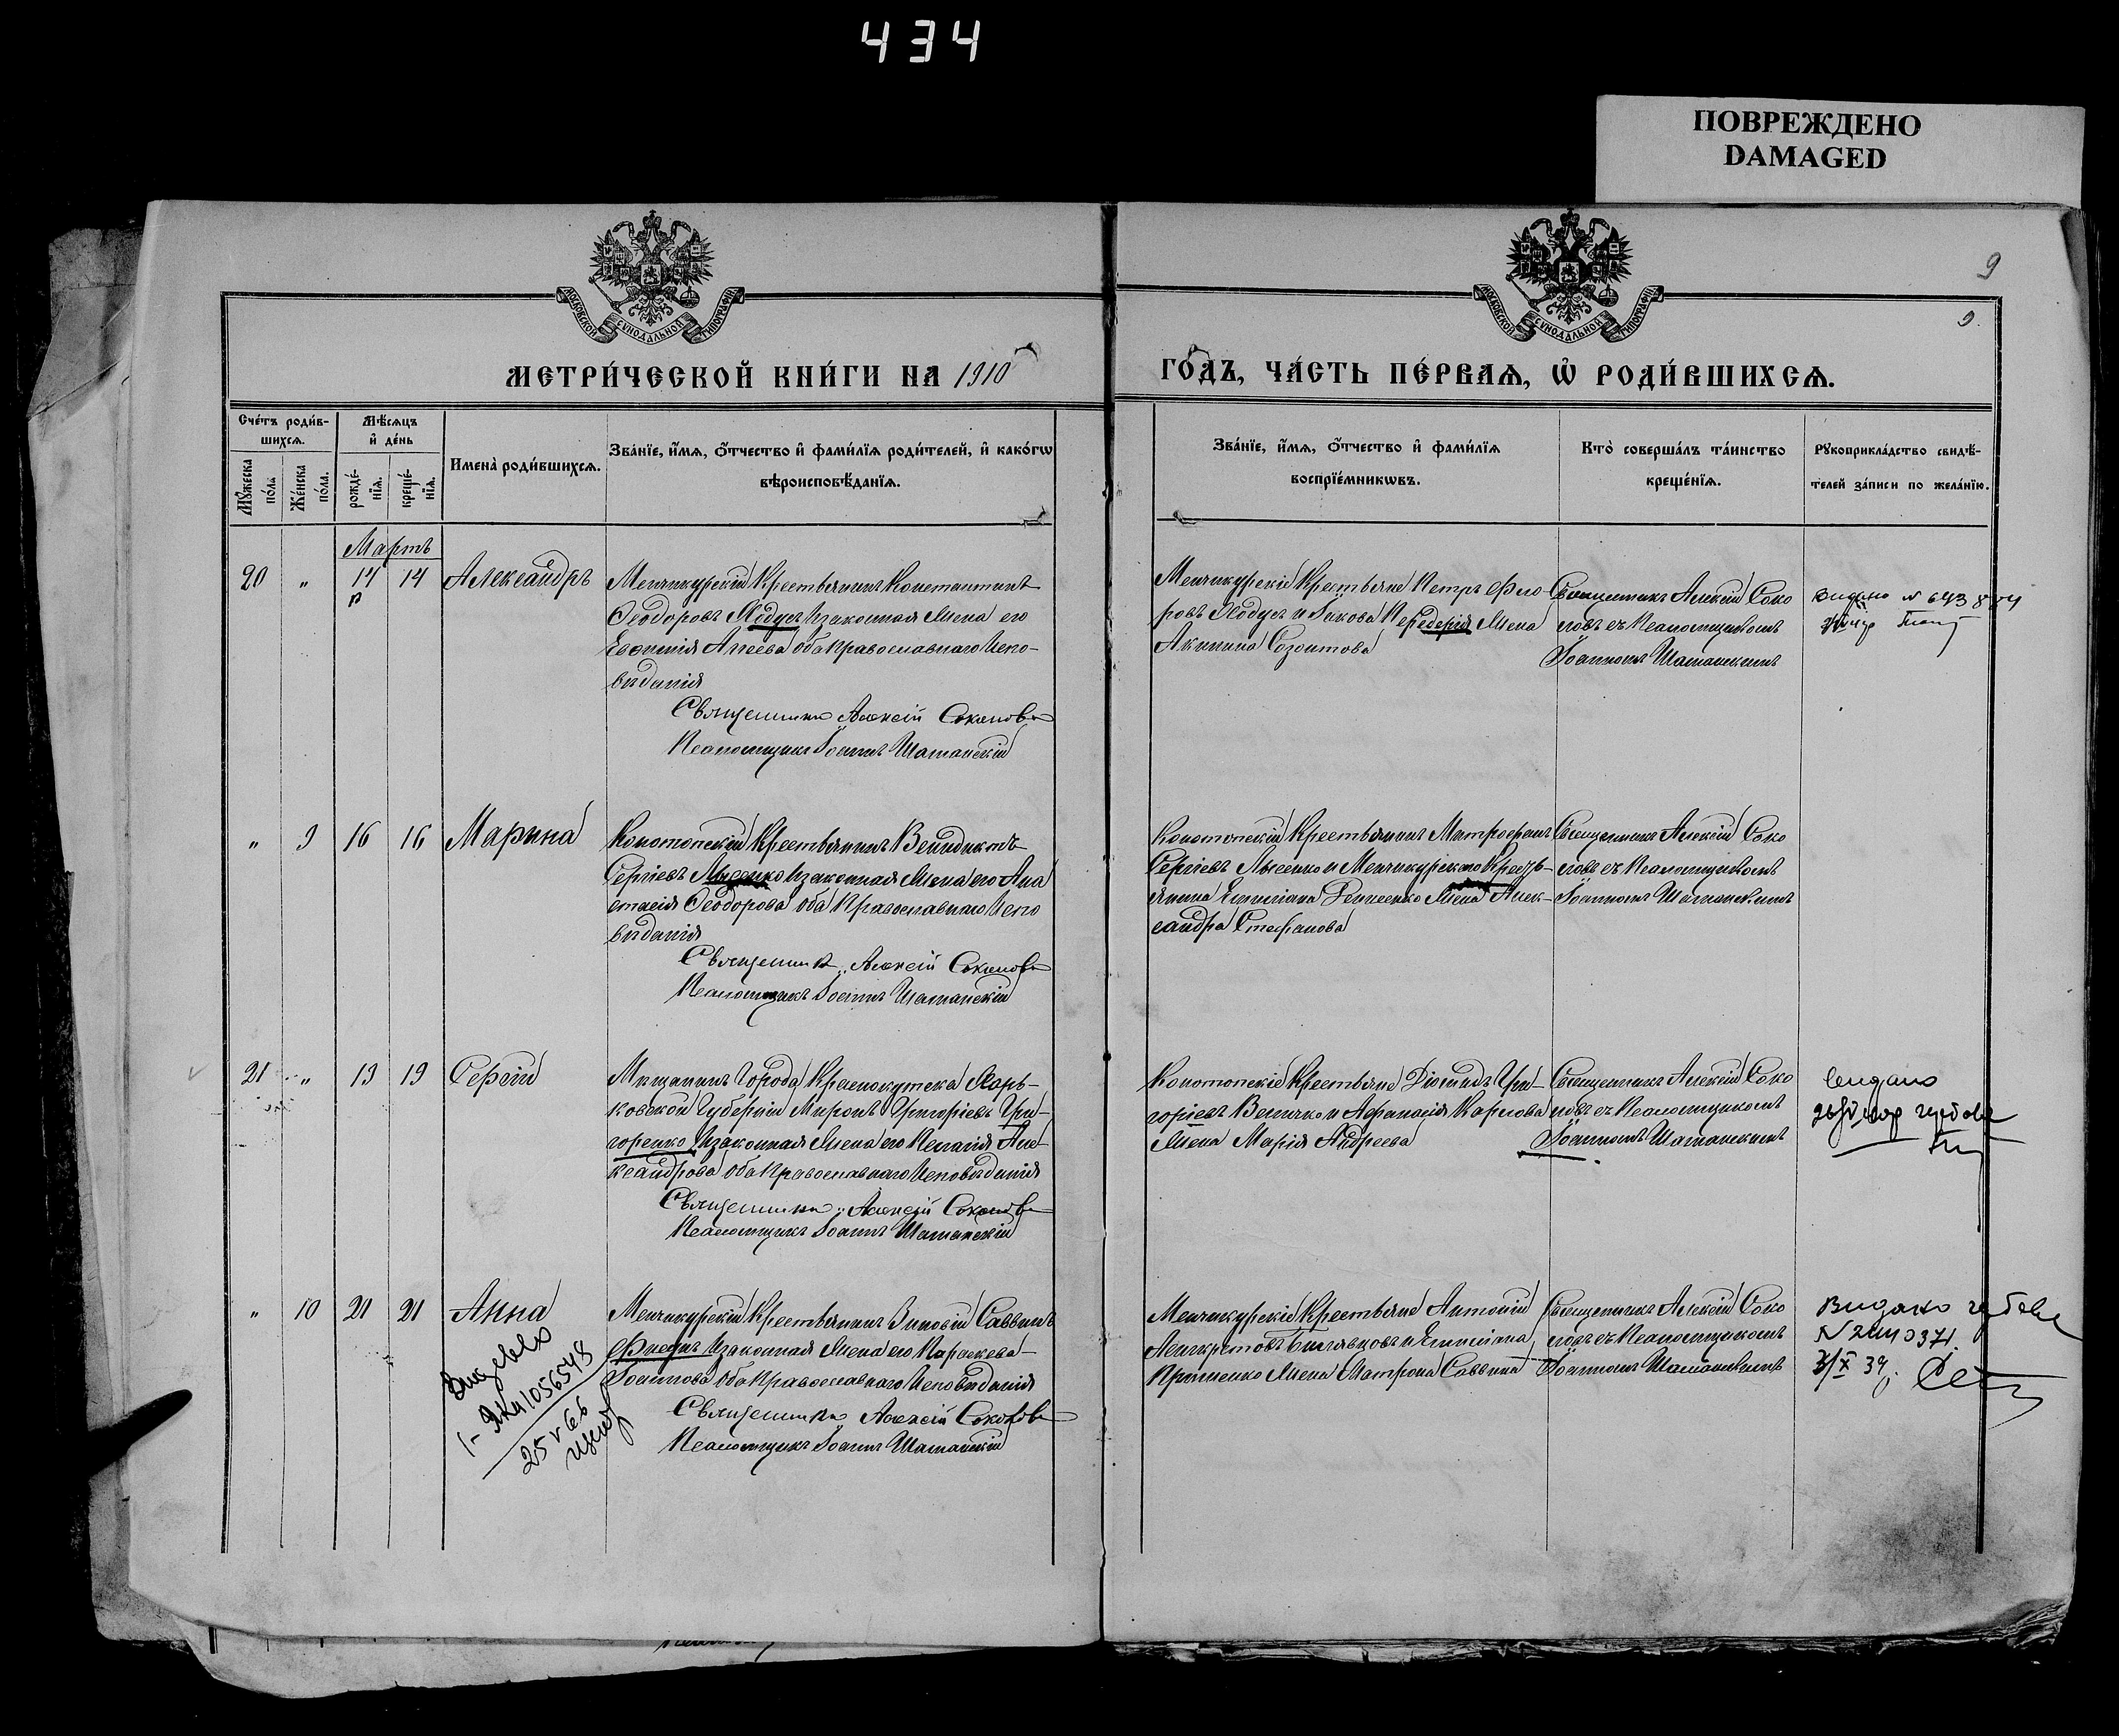 434
ПОВРЕЖДЕНО
DAMAGED
9
9.
МОСКОВСКОЙ СѴНОДАЛЬНОЙ ТИПОГРАФІИ
МОСКОВСКОЙ СѴНОДАЛЬНОЙ ТИПОГРАФІИ
МЕТРИ́ЧЕСКОЙ КНИ́ГИ НА 1910
ГО́ДЪ, ЧА́СТЬ ПЕ́РВАѦ, Ѡ҆ РОДИ́ВШИХСѦ.
Сче́тъ роди́в-
шихсѧ.
Мꙋ́жеска по́ла
Же́нска по́ла.
Мѣ́сѧцъ
и҆ де́нь
рожде́-
нїѧ.
креще́-
нїѧ.
Имена̀ роди́вшихсѧ.
Зва́нїе, и҆́мѧ, ѻ҆́тчество и҆ фами́лїѧ роди́телей, и҆ како́гѡ
вѣроисповѣ́данїѧ.
Зва́нїе, и҆́мѧ, ѻ҆́тчество и҆ фами́лїѧ
воспрїе́мникѡвъ.
Кто̀ соверша́лъ та́инство
креще́нїѧ.
Рꙋкоприкла́дство свидѣ́-
телей за́писи по жела́нїю.
Мартъ
20 " 14 14 Александръ
Менчикурскій Крестьянинъ Константинъ
Ѳеодоровъ Ходусъ и законная жена его
Евфимія Агеева оба Православнаго Испо-
вѣданія
Священникъ Алексій Соколовъ
Псаломщикъ Іоаннъ Шатанскій
Менчикурскіе Крестьяне Петръ Фло-
ровъ Ходусъ и Іакова Передерія жена
Акилина Созонтова
Священникъ Алексій Соко
ловъ съ Псаломщикомъ
Іоанномъ Шатанскимъ
Видано №
" 9 16 16 Марина
Конотопскій Крестьянинъ Венидиктъ
Сергіевъ Лысенко и законная жена его Ана
стасія Ѳеодорова оба Православнаго Испо
вѣданія
Священникъ Алексій Соколовъ
Псаломщикъ Іоаннъ Шатанскій
Конотопскій Крестьянинъ Митрофанъ
Сергіевъ Лысенко и Менчикурскаго Кресть-
янина Емиліана жена Алек-
сандра Стефанова
Священникъ Алексій Соко
ловъ съ Псаломщикомъ
Іоанномъ Шатанскимъ
21 " 19 19 Сергій
Мѣщанинъ Города Краснокутска Харь-
ковской Губерніи Миронъ Григоріевъ Гри-
горенко и законная жена его Пелагія Але
ксандрова оба Православнаго Исповѣданія
Священникъ Алексій Соколовъ
Псаломщикъ Іоаннъ Шатанскій
Конотопскіе Крестьяне Діомидъ Гри-
горіевъ Величко и Афанасія Карпова
жена Марія Андреева
Священникъ Алексій Соко
ловъ съ Псаломщикомъ
Іоанномъ Шатанскимъ
видано
" 10 21 21 Анна
Менчикурскій Крестьянинъ Зиновій Саввинъ
Фисунъ и законная жена его Параскева
Іоаннова оба Православнаго Исповѣданія
Священникъ Алексій Соколовъ
Псаломщикъ Іоаннъ Шатанскій
25 V 66
Менчикурскіе Крестьяне Антоній
и Емиліана
жена Матрона Саввина
Священникъ Алексій Соко
ловъ съ Псаломщикомъ
Іоанномъ Шатанскимъ
Видано